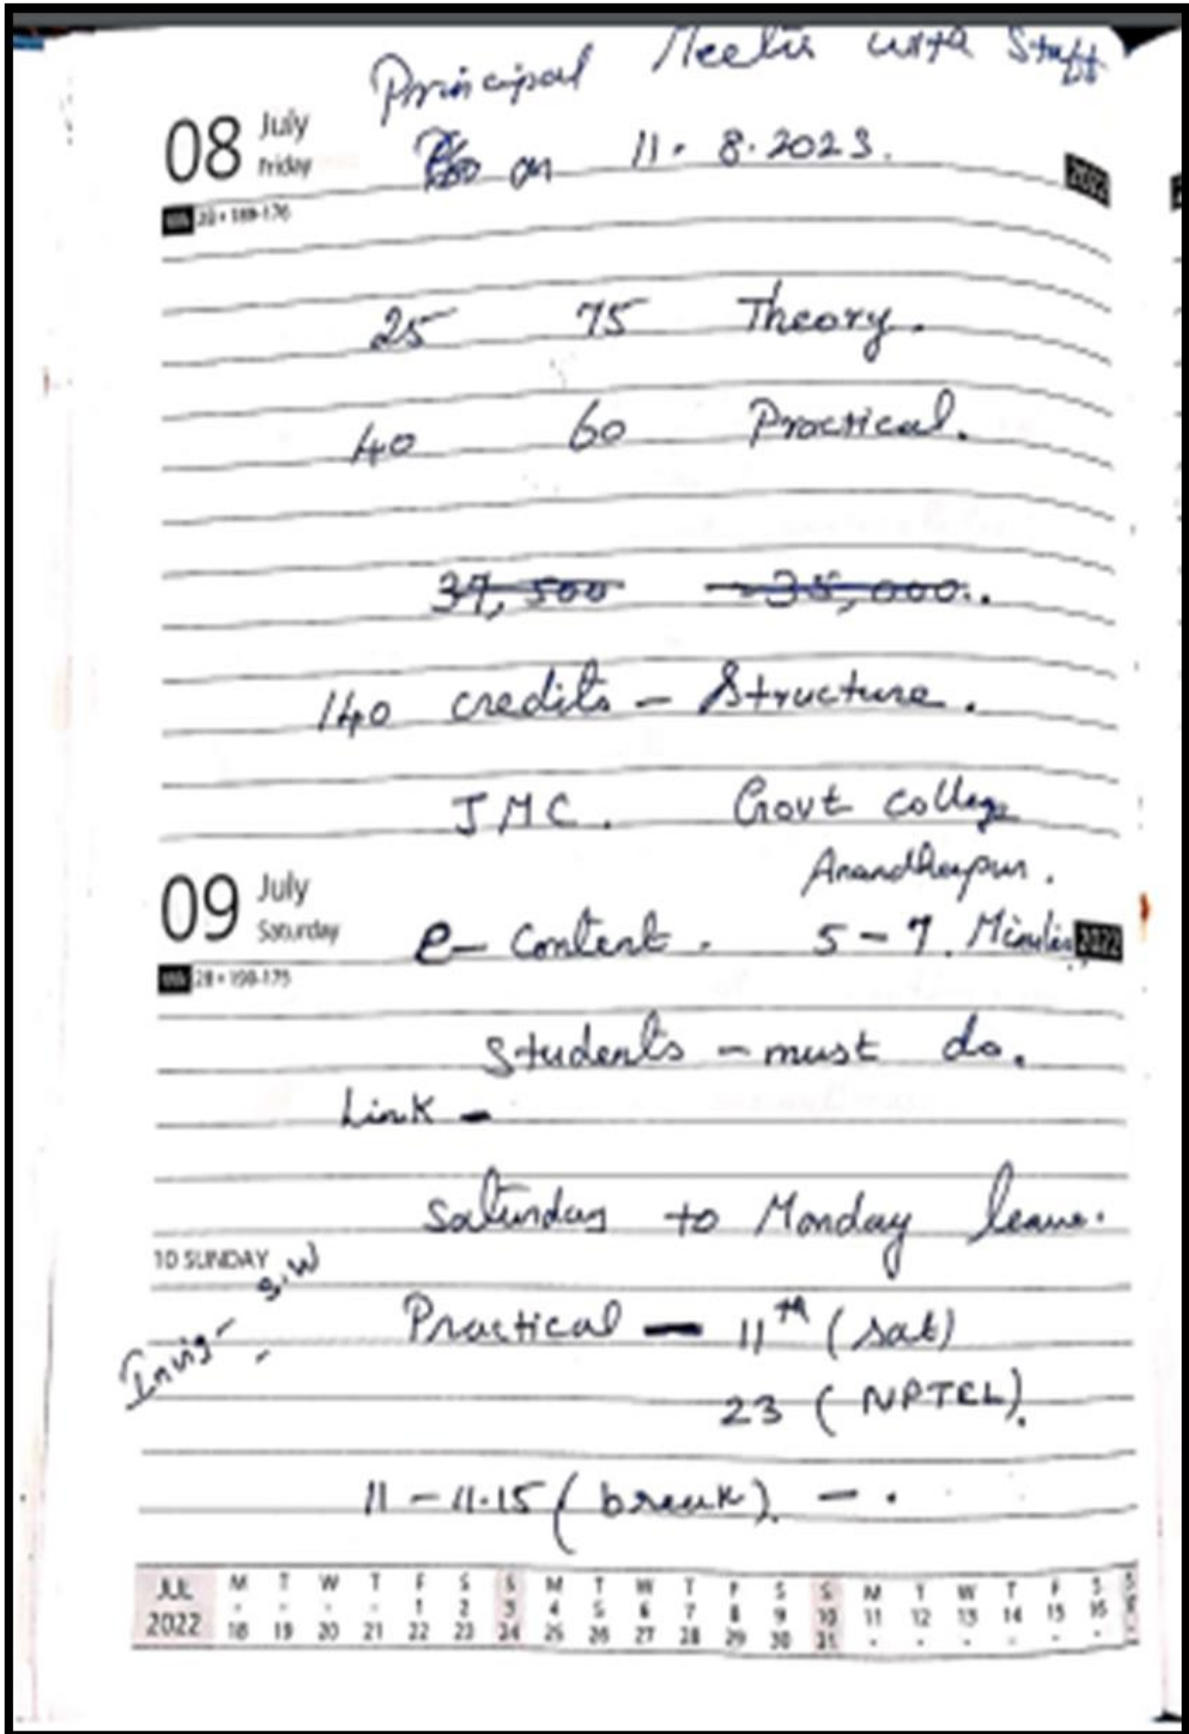 Principal Meetin with Staff
08 July
Friday
on 11. 8. 2023.
2022
25 75 Theory.
40 60 Practical.
37,500 - 35,000..
140 credits - Structure.
JMC. Govt College
09 July
Saturday
e- Content. 5 - 7. Minutes
2022
Students - must do.
Link -
Saturday to Monday leave.
10 SUNDAY
S.W
Invig -
Practical - 11th (sat)
23 (NPTEL).
11 - 11.15 (break). - .
JUL M T W T F S S M T W T F S S M T W T F S S
2022 - - - - 1 2 3 4 5 6 7 8 9 10 11 12 13 14 15 16
18 19 20 21 22 23 24 25 26 27 28 29 30 31 - - - - - -